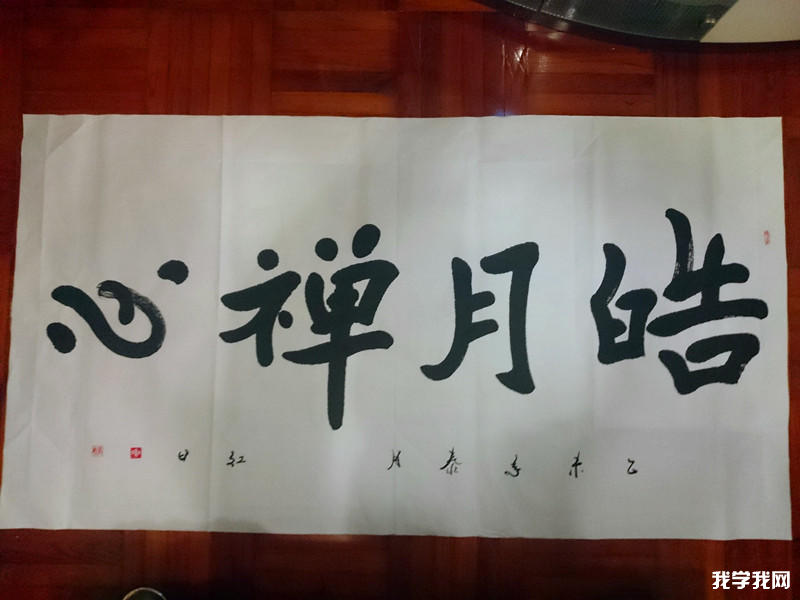 皓月禅心
乙未 泰月 红日
我学我网